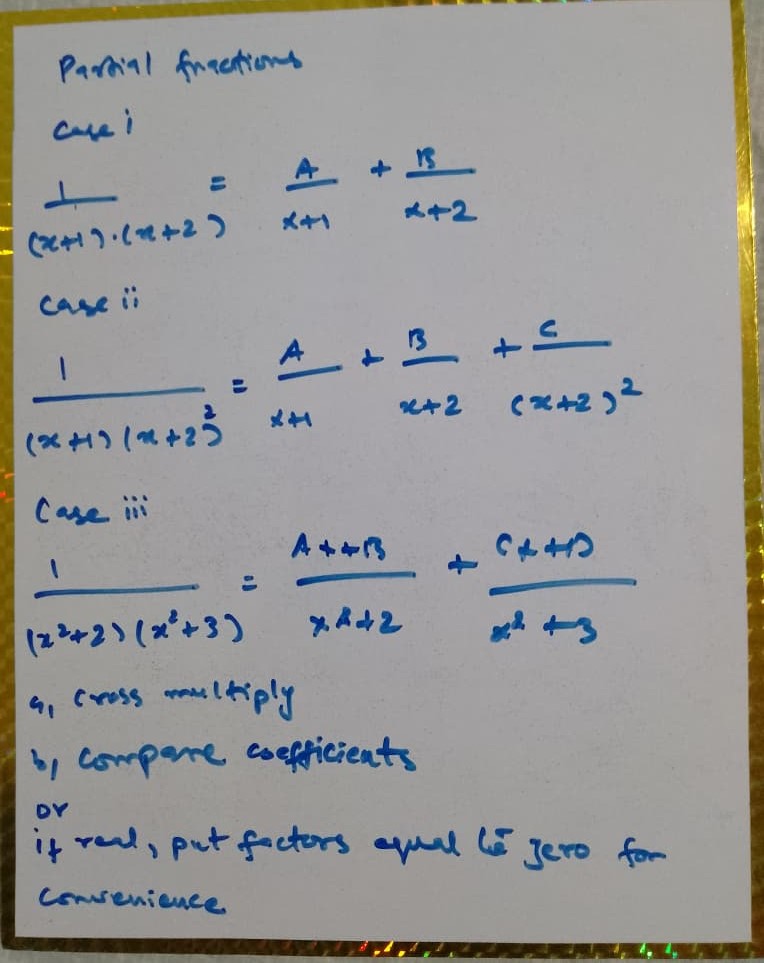 Partial fractions
Case i
1/((x+1).(x+2)) = A/(x+1) + B/(x+2)
case ii
1/((x+1)(x+2)²) = A/(x+1) + B/(x+2) + C/(x+2)²
Case iii
1/((x²+2)(x²+3)) = (Ax+B)/(x²+2) + (Cx+D)/(x²+3)
a, cross multiply
b, compare coefficients
or
if real, put factors equal to zero for
convenience